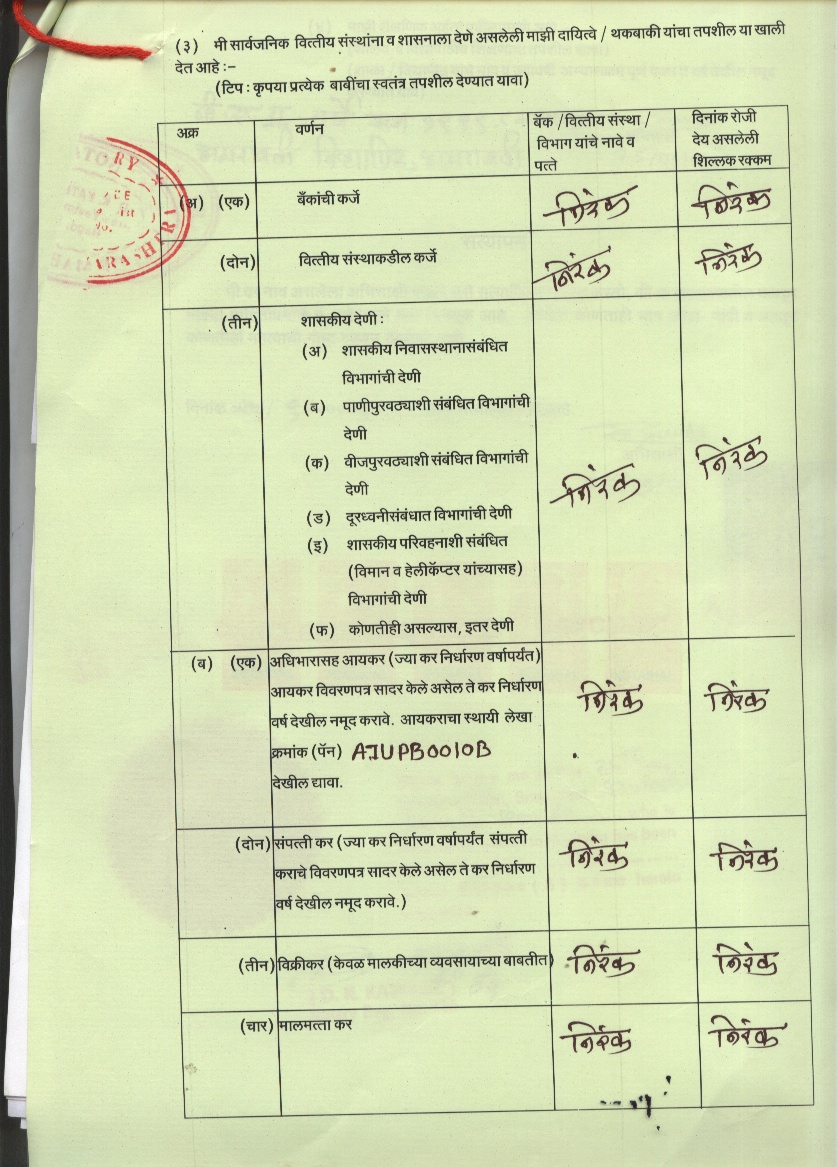 (३) मी सार्वजनिक वित्तीय संस्थांना व शासनाला देणे असलेली माझी दायित्वे / थकबाकी यांचा तपशील या खाली
देत आहे :–
(टिप : कृपया प्रत्येक बाबींचा स्वतंत्र तपशील देण्यात यावा)
अक्र वर्णन बँक / वित्तीय संस्था / विभाग यांचे नावे व पत्ते दिनांक रोजी देय असलेली शिल्लक रक्कम
(अ) (एक) बँकांची कर्जे निरंक निरंक
(दोन) वित्तीय संस्थाकडील कर्जे निरंक निरंक
(तीन) शासकीय देणी :
(अ) शासकीय निवासस्थानासंबंधित
विभागांची देणी
(ब) पाणीपुरवठ्याशी संबंधित विभागांची
देणी
(क) वीजपुरवठ्याशी संबंधित विभागांची
देणी निरंक निरंक
(ड) दूरध्वनीसंबंधात विभागांची देणी
(इ) शासकीय परिवहनाशी संबंधित
(विमान व हेलीकॅप्टर यांच्यासह)
विभागांची देणी
(फ) कोणतीही असल्यास, इतर देणी
(ब) (एक) अधिभारासह आयकर (ज्या कर निर्धारण वर्षापर्यंत)
आयकर विवरणपत्र सादर केले असेल ते कर निर्धारण निरंक निरंक
वर्ष देखील नमूद करावे. आयकराचा स्थायी लेखा
क्रमांक (पॅन) AIUPB0010B
देखील द्यावा.
(दोन) संपत्ती कर (ज्या कर निर्धारण वर्षापर्यंत संपत्ती निरंक निरंक
कराचे विवरणपत्र सादर केले असेल ते कर निर्धारण
वर्ष देखील नमूद करावे.)
(तीन) विक्रीकर (केवळ मालकीच्या व्यवसायाच्या बाबतीत) निरंक निरंक
(चार) मालमत्ता कर निरंक निरंक